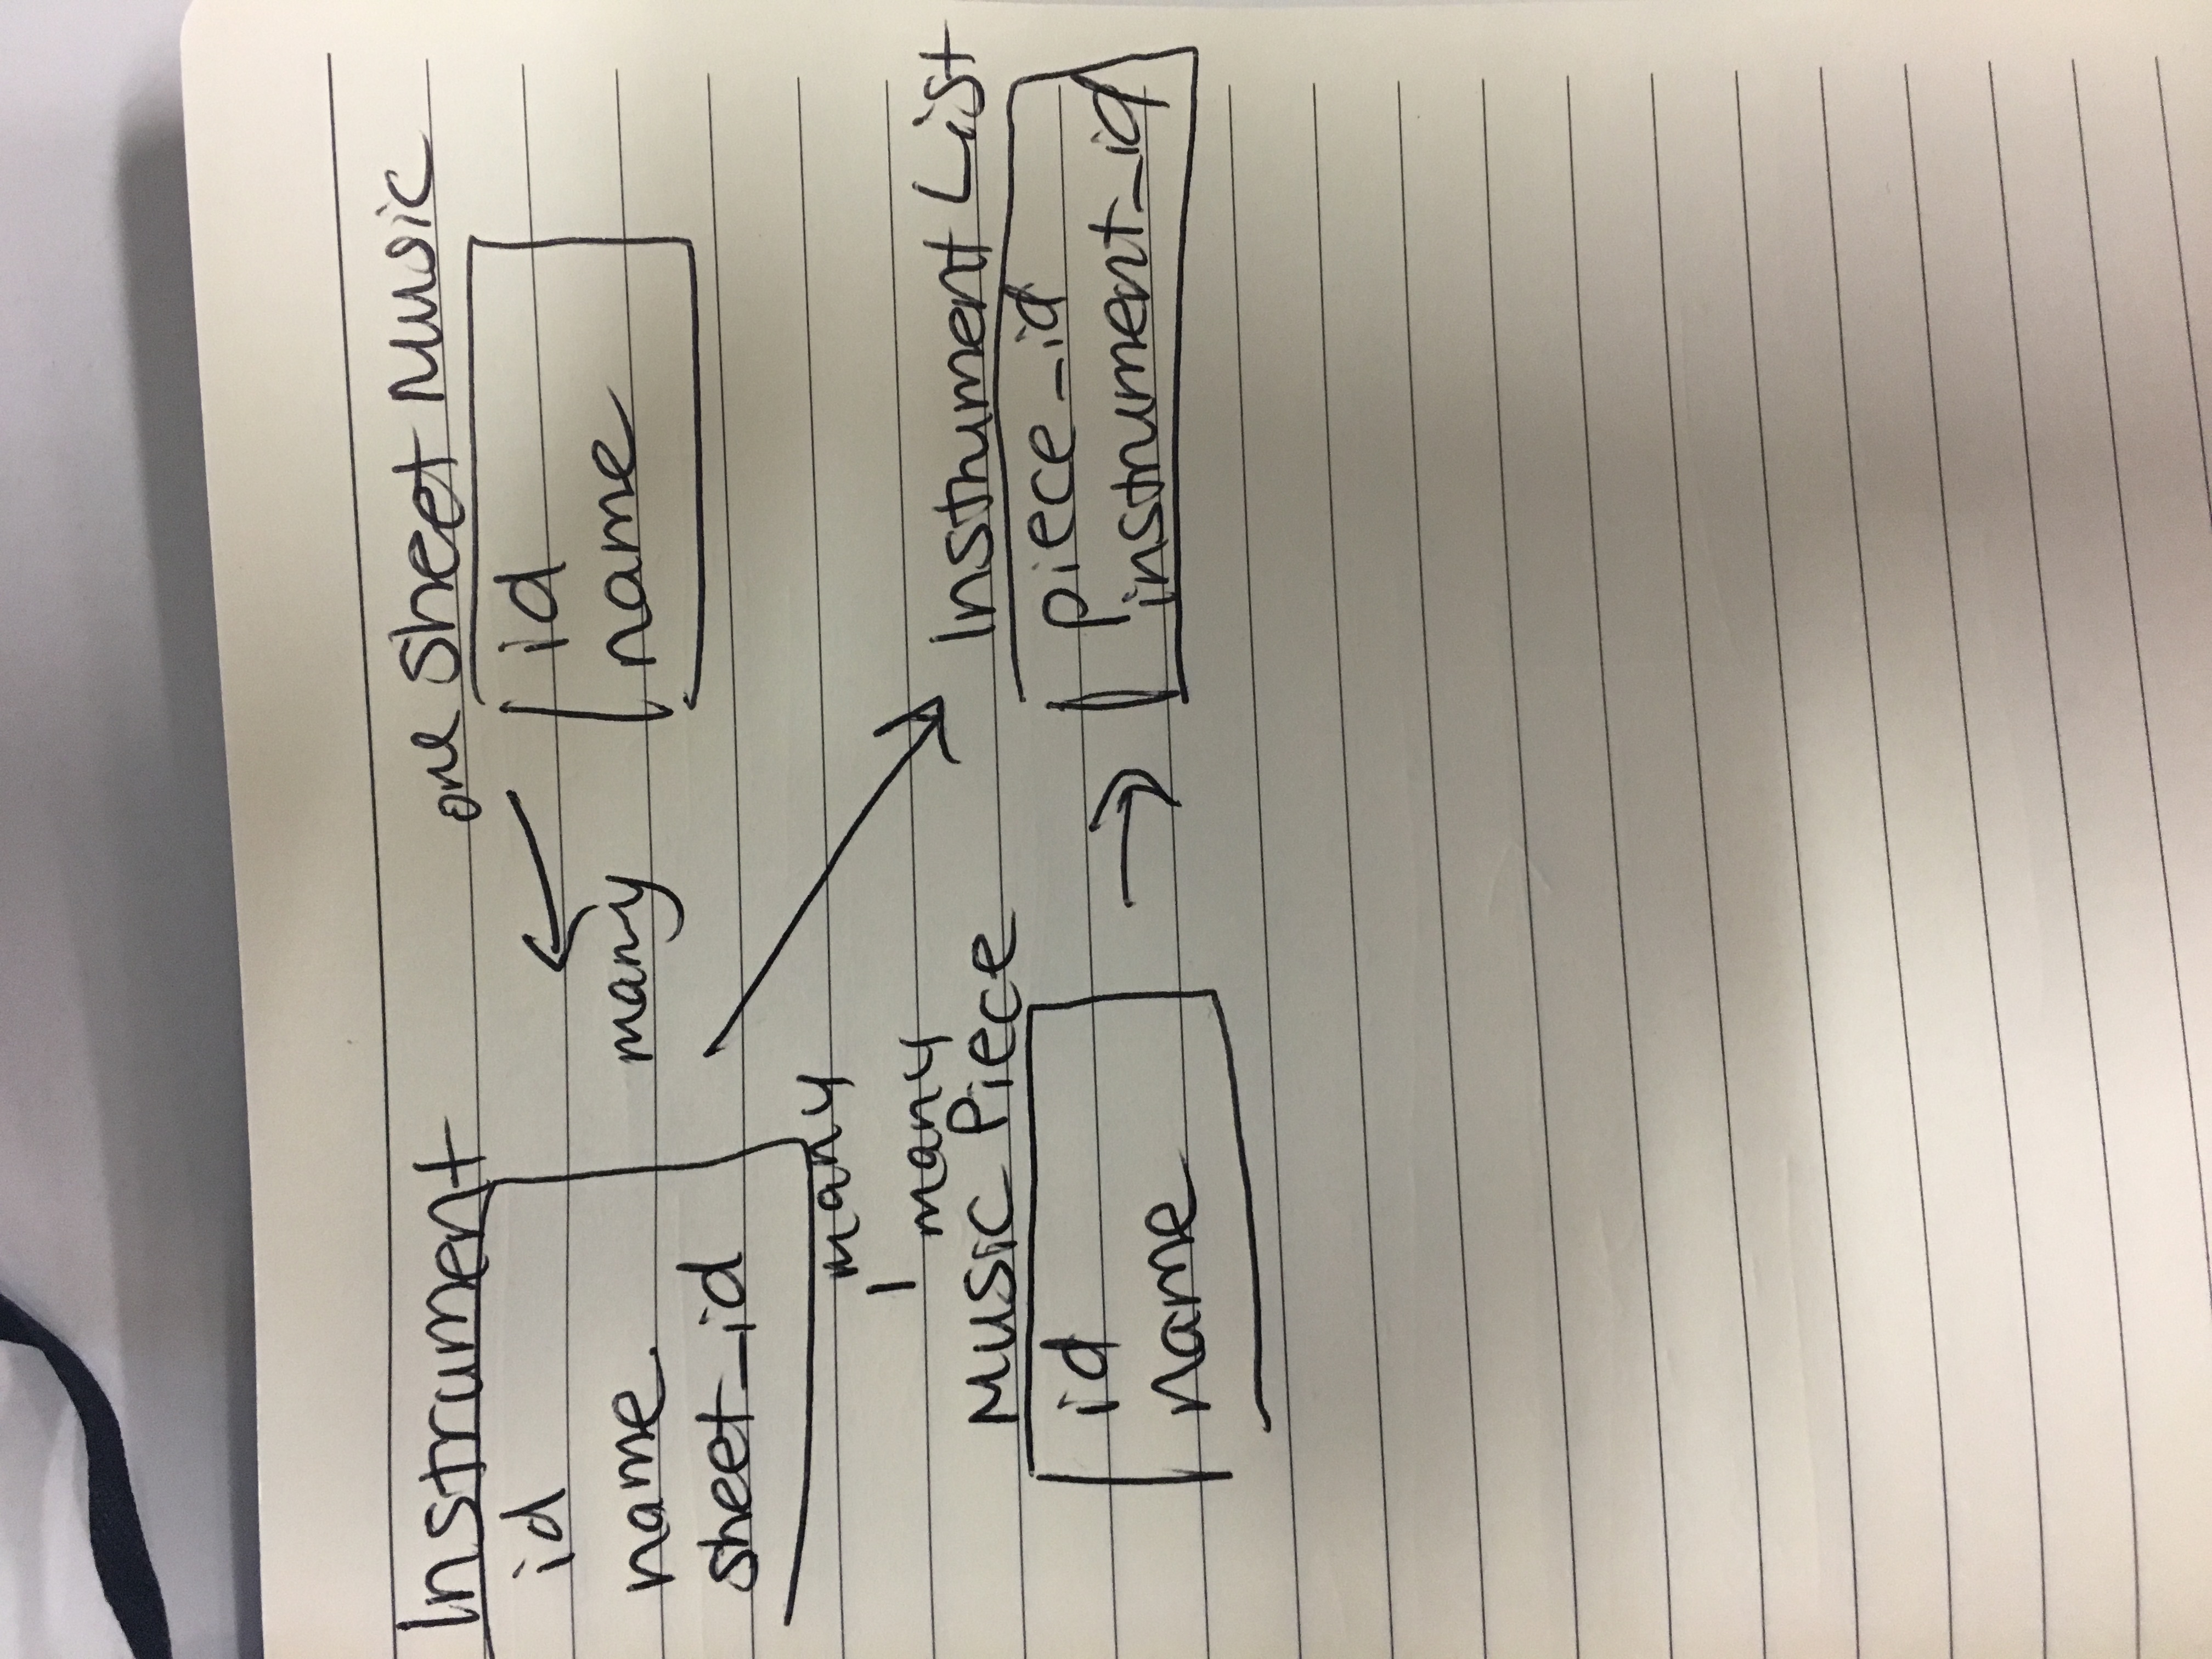 Instrument
id
name
sheet_id
one Sheet Music
id
name
many
many
many
Music Piece
id
name
Instrument List
piece_id
instrument_id